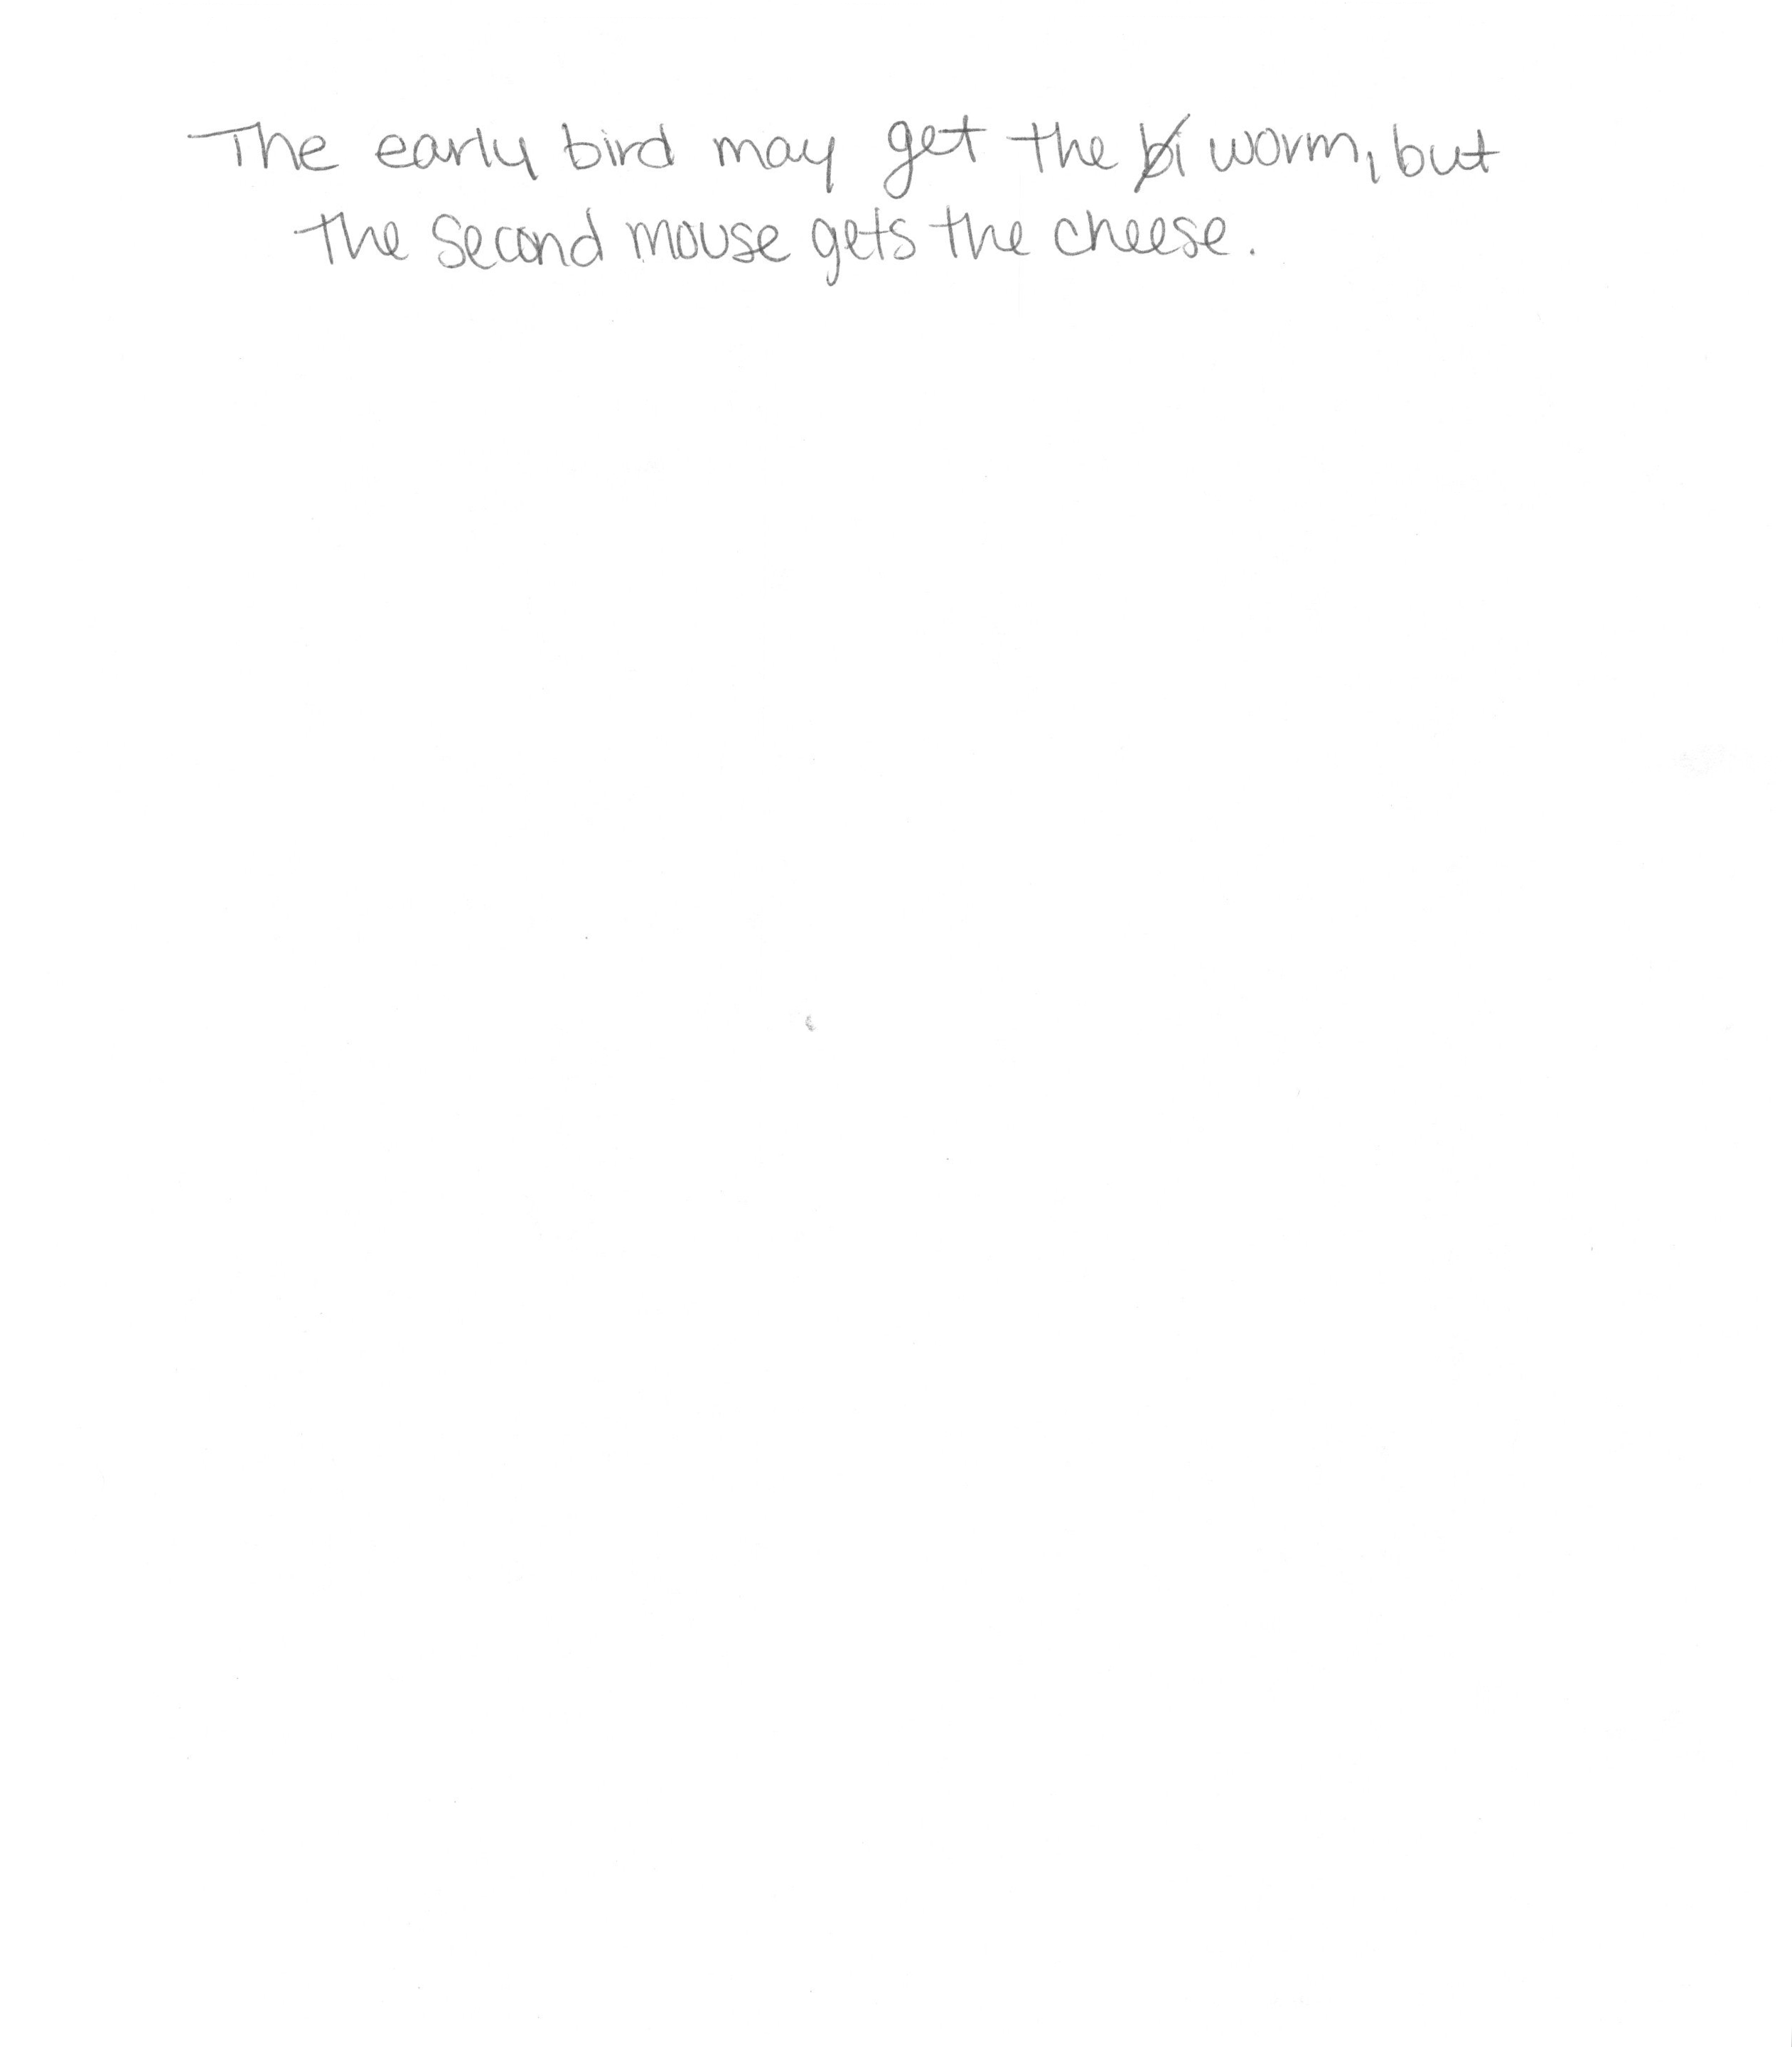 The early bird may get the bi worm, but
the second mouse gets the cheese.